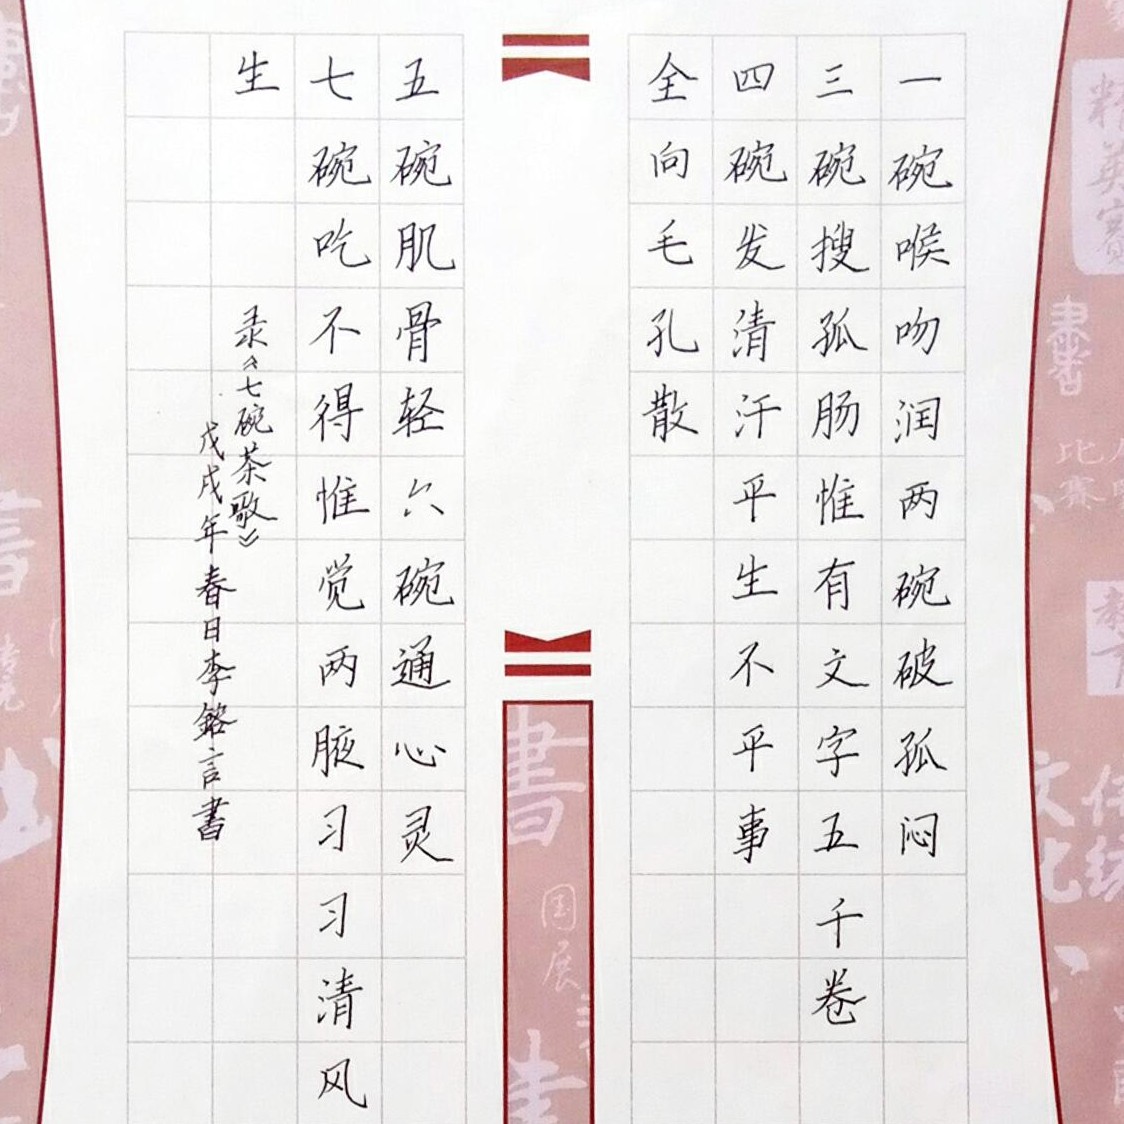 一碗喉吻润两碗破孤闷
三碗搜孤肠惟有文字五千卷
四碗发清汗平生不平事
全向毛孔散
五碗肌骨轻六碗通心灵
七碗吃不得惟觉两腋习习清风
生
录《七碗茶歌》
戊戌年春日李鎔言書
書
国展